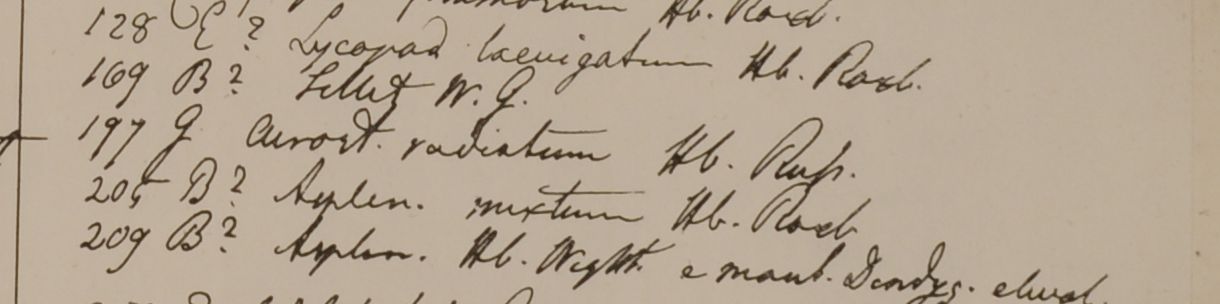 Hb. Roxb.
128 E? Lycopod laevigatum Hb. Roxb.
169 B? Sillet W. G.
197 G Acrost. radiatum Hb. Russ.
205 B? Asplen. mixtum Hb. Roxb
209 B? Asplen. Hb. Wight. e mont. Dindyg.